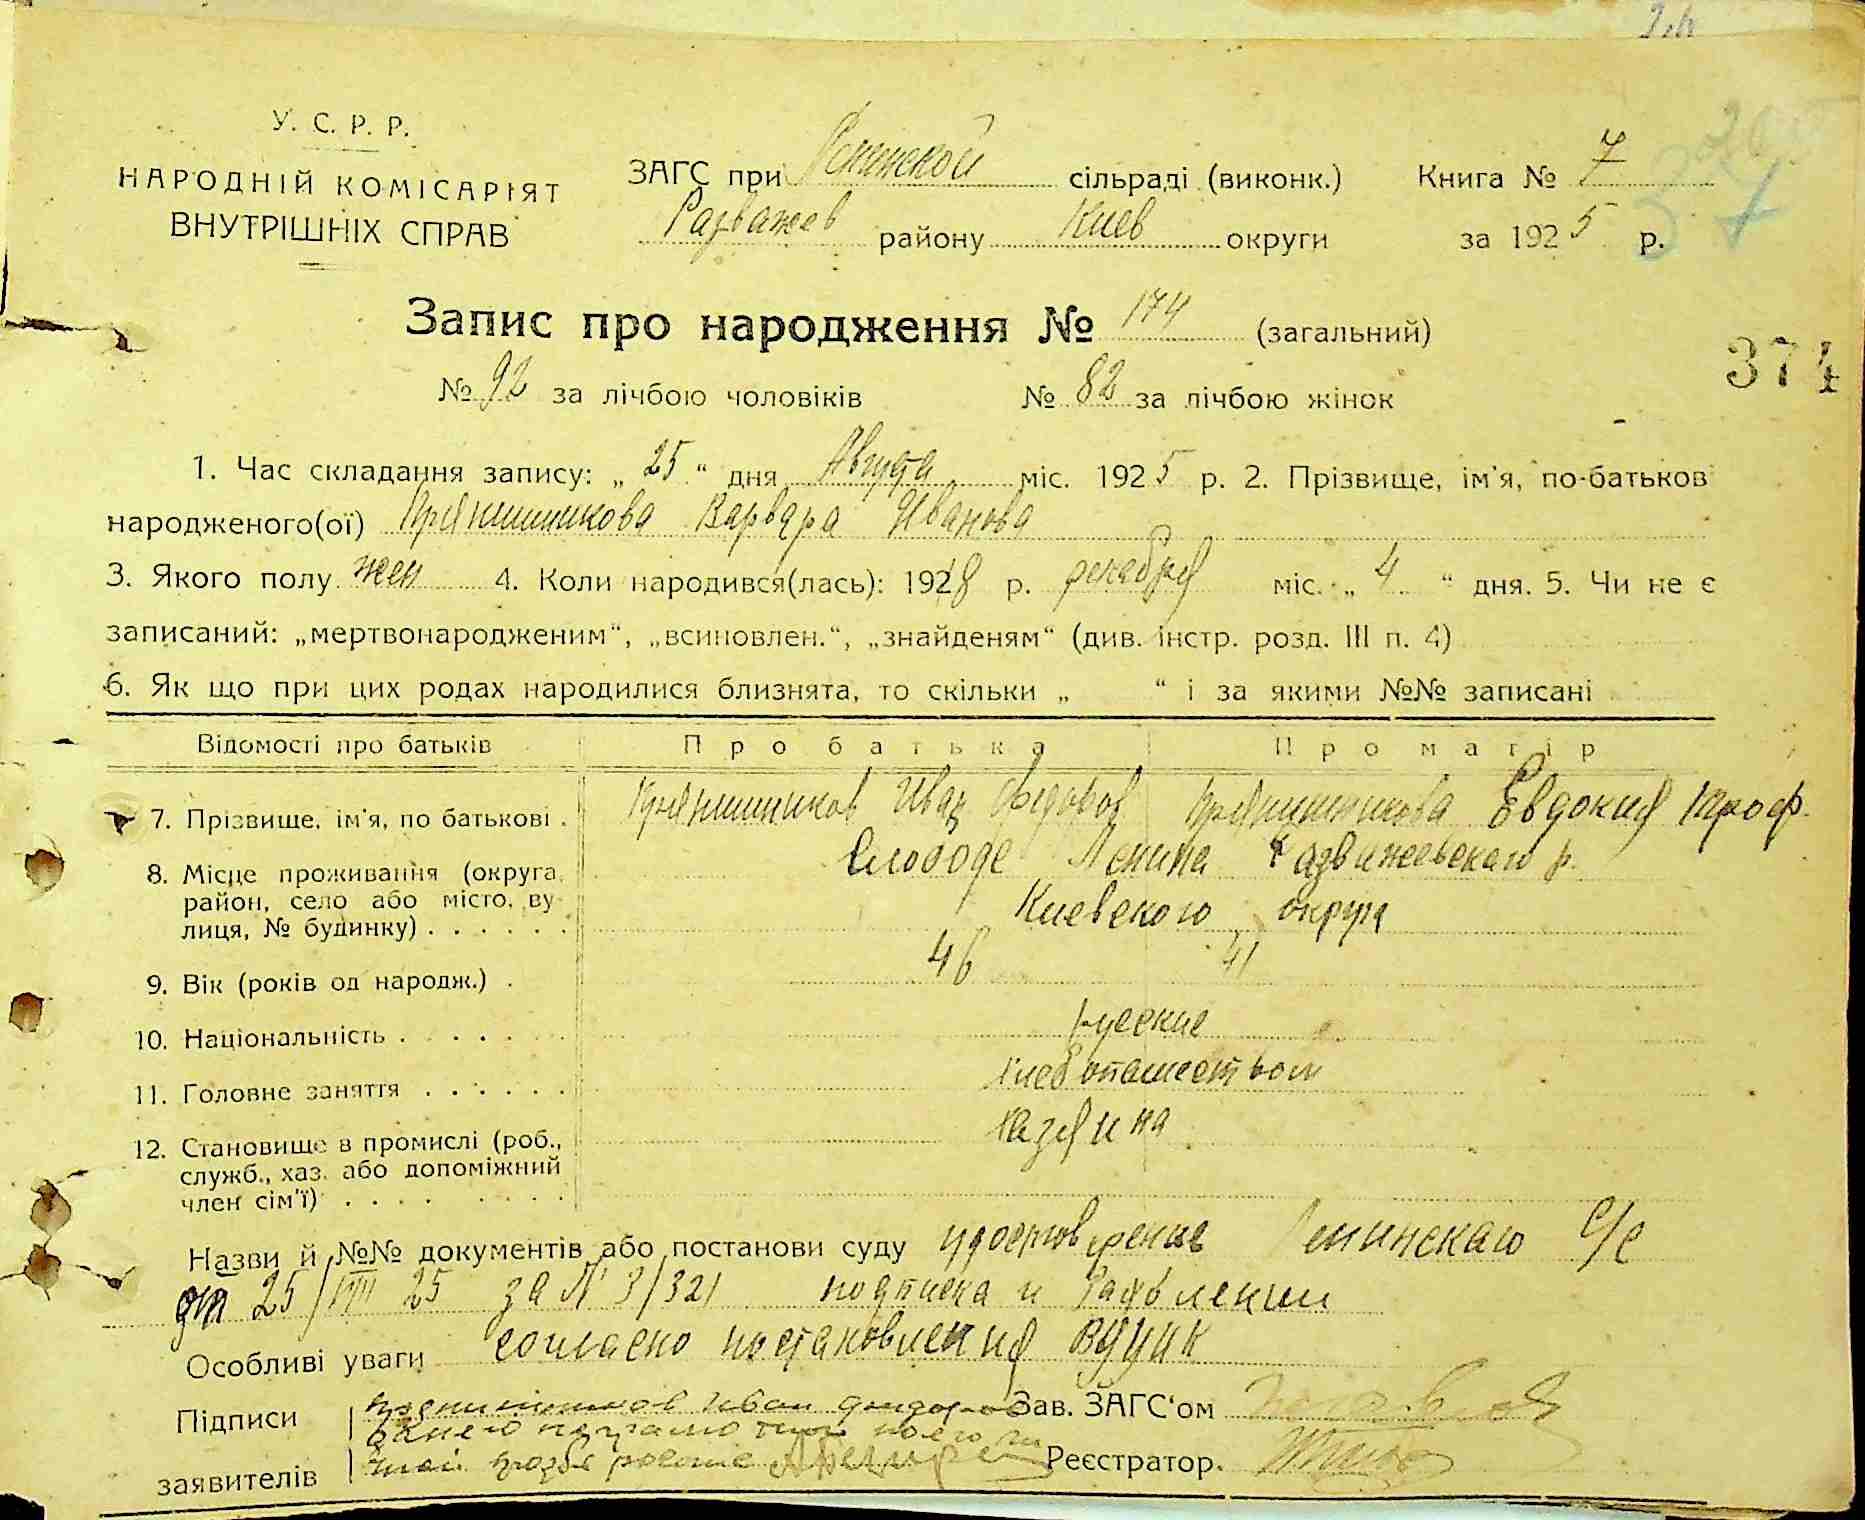 У. С. Р. Р.
НАРОДНІЙ КОМІСАРІЯТ
ВНУТРІШНІХ СПРАВ
ЗАГС при Ленинской сільраді (виконк.) Книга № 7
Разважев району Киев округи за 1925 р.
37
Запис про народження № 174 (загальний)
374
№ 92 за лічбою чоловіків № 82 за лічбою жінок
1. Час складання запису: „ 25 “ дня Августа міс. 1925 р. 2. Прізвище, ім'я, по-батьков
народженого(ої) Прянишникова Варвара Иванова
3. Якого полу жен 4. Коли народився(лась): 1918 р. декабря міс. „ 4 “ дня. 5. Чи не є
записаний: „мертвонародженим“, „всиновлен.“, „знайденям“ (див. інстр. розд. III п. 4)
6. Як що при цих родах народилися близнята, то скільки „ “ і за якими №№ записані
Відомості про батьків Про батька Про матір
7. Прізвище, ім'я, по батькові . Прянишников Иван Федоров Прянишникова Евдокия Троф.
8. Місце проживання (округа, Слободе Ленина Разважевскаго р.
район, село або місто, ву- Киевского округа
лиця, № будинку) . . . . . .
9. Вік (років од народж.) . 46 41
10. Національність . . . . . . русские
11. Головне заняття . . . . . . хлебопашеством
12. Становище в промислі (роб., хазяина
служб., хаз. або допоміжний
член сім'ї) . . . . . . . .
Назви й №№ документів або постанови суду удостоверение Ленинскаго С/с
от 25/VIII 25 за № 3/321 подписка и
Особливі уваги согласно постановления ВУЦИК
Підписи Прянишников Иван Зав. ЗАГС'ом
заявителів Реєстратор.